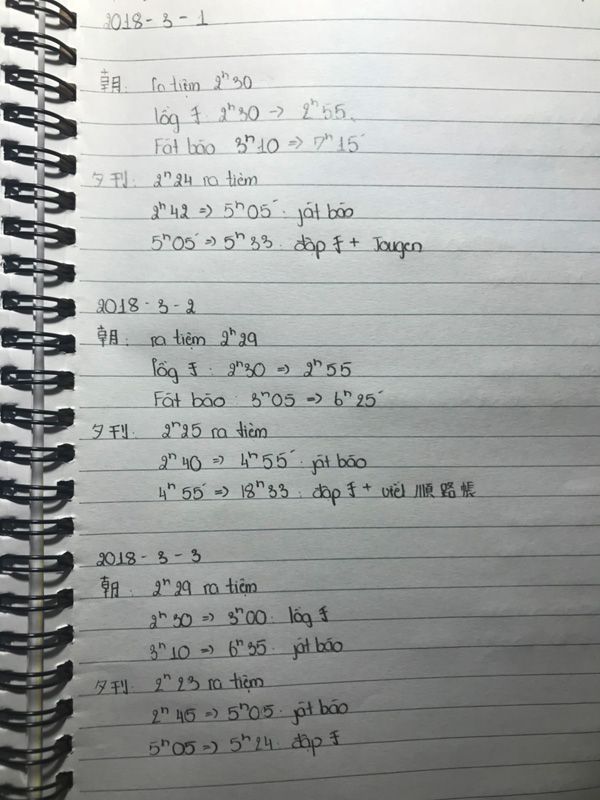 2018 - 3 - 1
朝: ra tiệm 2h30
lồng チ: 2h30 => 2h55
Fát báo 3h10 => 7h15'
夕刊: 2h24 ra tiệm
2h42 => 5h05' fát báo
5h05' => 5h33. đập チ +
2018 - 3 - 2
朝: ra tiệm 2h29
lồng チ: 2h30 => 2h55
Fát báo: 3h05 => 6h25'
夕刊: 2h25 ra tiệm
2h40 => 4h55' fát báo
4h55' => 18h33. đập チ + viết 順路帳
2018 - 3 - 3
朝: 2h29 ra tiệm
2h30 => 3h00. lồng チ
3h10 => 6h35. fát báo
夕刊: 2h23 ra tiệm
2h45 => 5h05. fát báo
5h05 => 5h24. đập チ